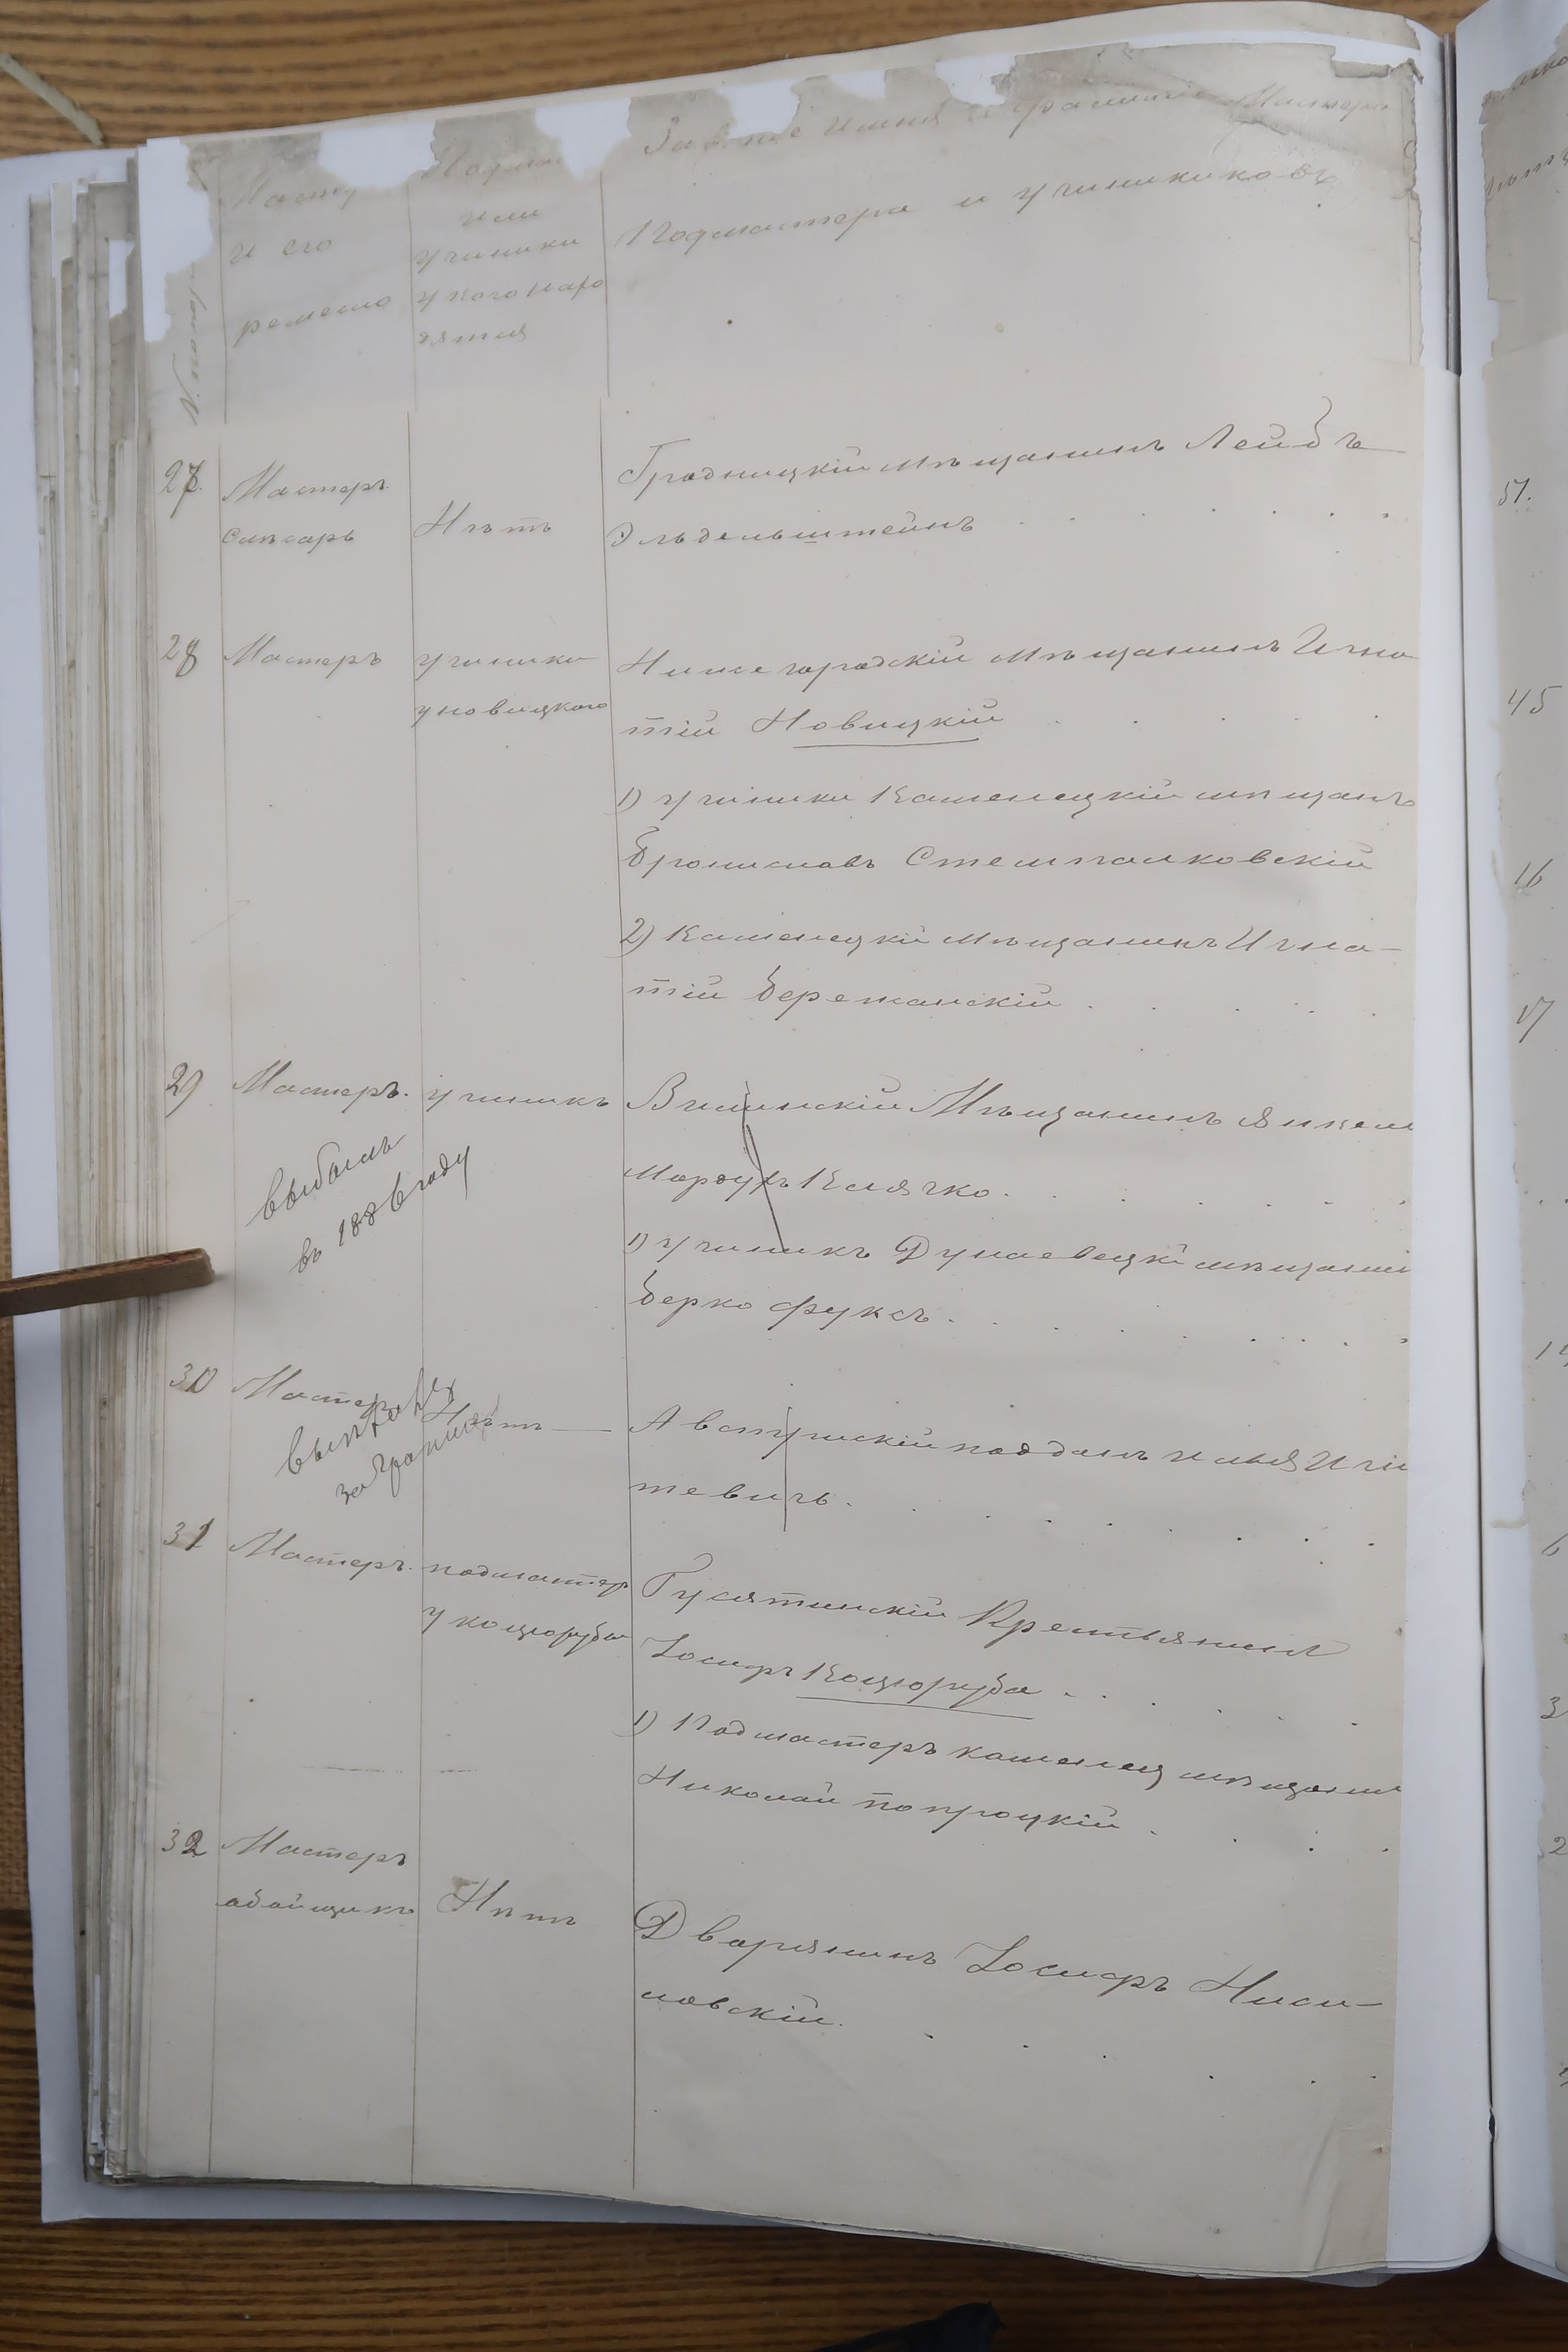 и его
ремесло
или
ученики
у кого наро
дятся
Званіе имя и фамилія Мастера
Подмастера и учиникиковъ
27. Мастеръ Слѣсарь
Нѣтъ
Гродницкій мѣщанинъ Лейбъ
Эльдельштейнъ
28 Мастеръ
учиники
у новицкого
Нижегородскій мѣщанинъ Игна
тій Новицкій
1) учиники Каменецкій мѣщанъ
Брониславъ Стемпалковскій
2) Каменецкій мѣщанинъ Игна-
тій Бережанскій
29 Мастеръ.
учиникъ
выбылъ
въ 1886 году
Виленскій Мѣщанинъ Янкель
Клячко
1) учиникъ Дунаевецкі мѣщани
Берко Фуксъ
30 Мастеръ
Нѣтъ
выѣхалъ
заграницу
Австрискій поддан Илья Игн
тевичъ
31 Мастеръ.
подмастер
у коцюрубы
Гусятинскій Крестьянин
Іосифъ Коцюруба
1) Подмастеръ каменец мѣщанин
Николай попроцкій
32 Мастеръ
обойщикъ
Нѣтъ
Дворянинъ Іосифъ Ниси-
ловскій.
51.
45
16
17
6
3
2